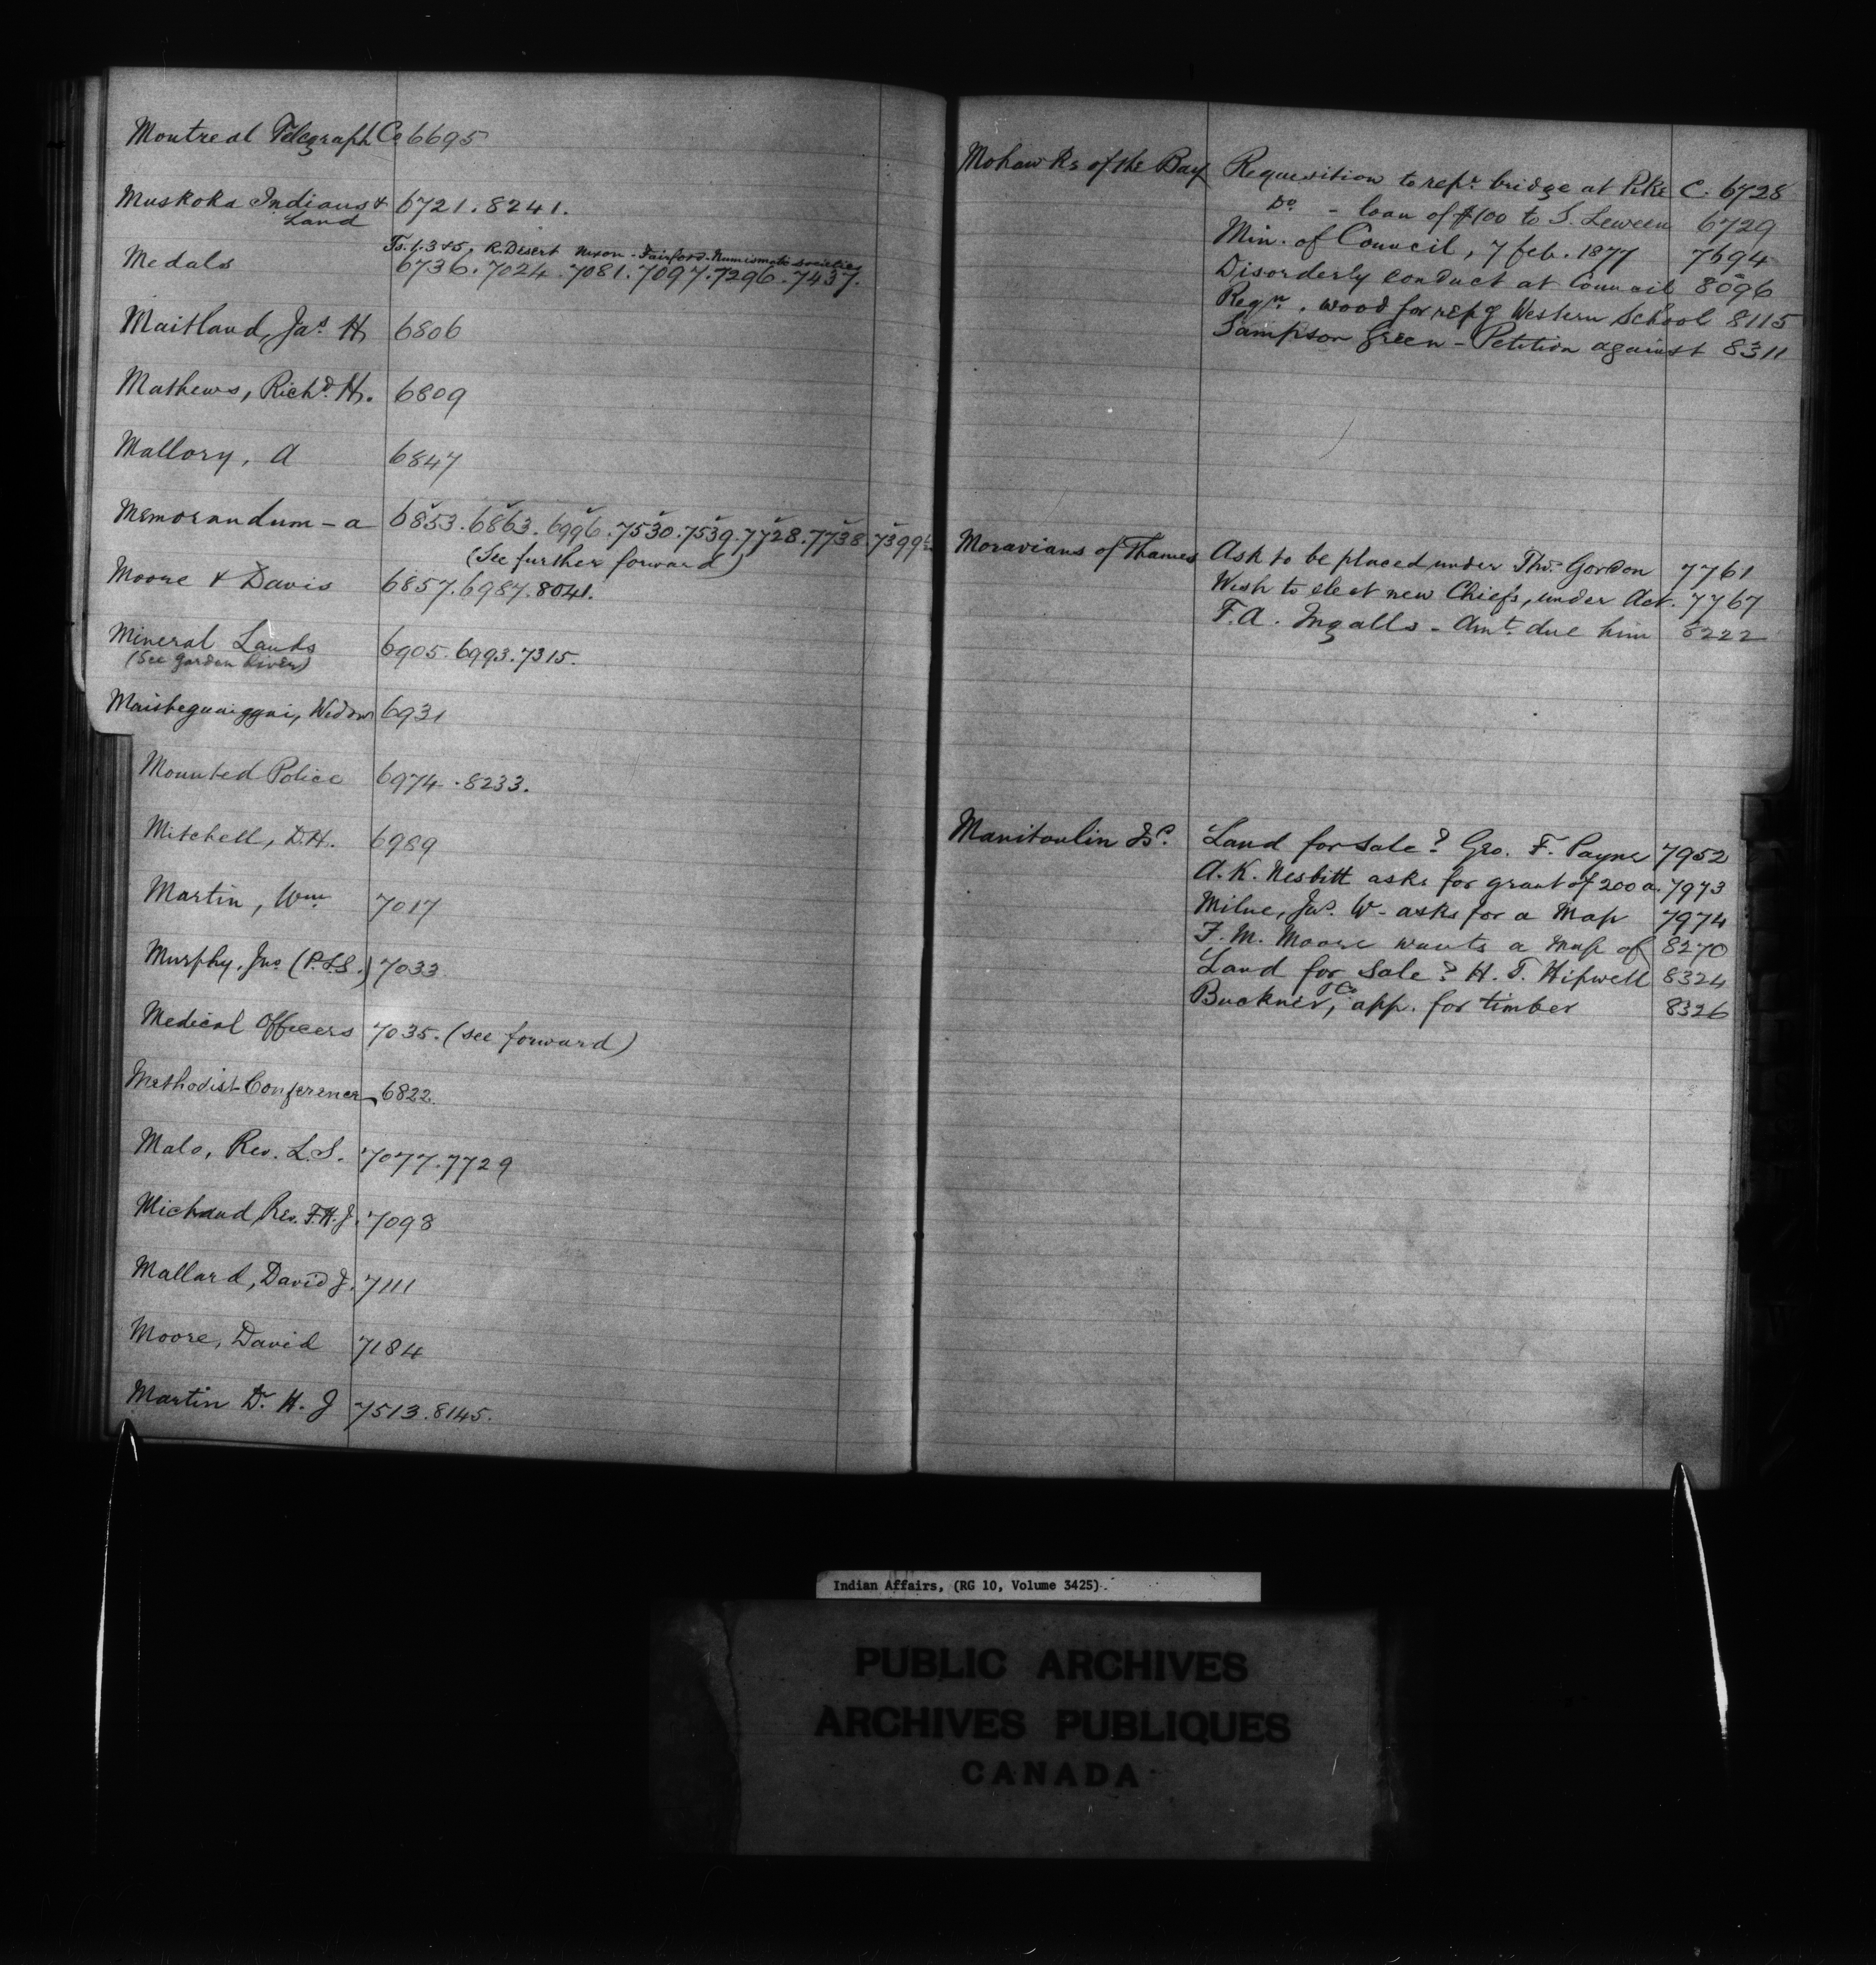 Montreal Telegraph Co 6695
Muskoka Indians & 6721. 8241.
Land
Ts. 1. 3 & 5. R. Desert Nixon - Fairford - Numismatic societies
Medals 6736. 7024. 7081. 7097. 7296. 7437.
Maitland, Jas. H. 6806
Mathews, Richd. H. 6809
Mallory, A 6847
Memorandum - a 6853. 6863. 6996. 7530. 7539. 7728. 7738. 7399½
(See further forward)
Moore & Davis 6857. 6987. 8041.
Mineral Lands 6905. 6993. 7315.
(See Garden River)
Widow 6931
Mounted Police 6974. 8233.
Mitchell, D.H. 6989
Martin, Wm 7017
Murphy, Jno (P.L.S.) 7033
Medical Officers 7035. (see forward)
Methodist Conference 6822.
Malo, Rev. L.S. 7077. 7729
Michaud, Rev. F.H.J. 7098
Mallard, David J. 7111
Moore, David 7184
Martin Dr. H. J 7513. 8145.
Mohawks of the Bay Requisition to repr. bridge at Pike C. 6728
Do - loan of $100 to S. 6729
Min. of Council, 7 feb. 1877 7694
Disorderly conduct at Council 8096
Reqn. wood for repg Western School 8115
Sampson Green - Petition against 8311
Moravians of Thames Ask to be placed under Thos. Gordon 7761
Wish to elect new Chiefs, under Act. 7767
F.A. Ingalls - Amt. due him 8222
Manitoulin Id. Land for sale? Geo. F. Payne 7952
A.K. Nesbitt asks for grant of 200 a. 7973
Milne, Jas. W - asks for a Map 7974
F. M. Moore wants a Map of 8270
Land for Sale? H. T. Hipwell 8324
Buckner, T C. app. for timber 8326
Indian Affairs, (RG 10, Volume 3425).
PUBLIC ARCHIVES
ARCHIVES PUBLIQUES
CANADA